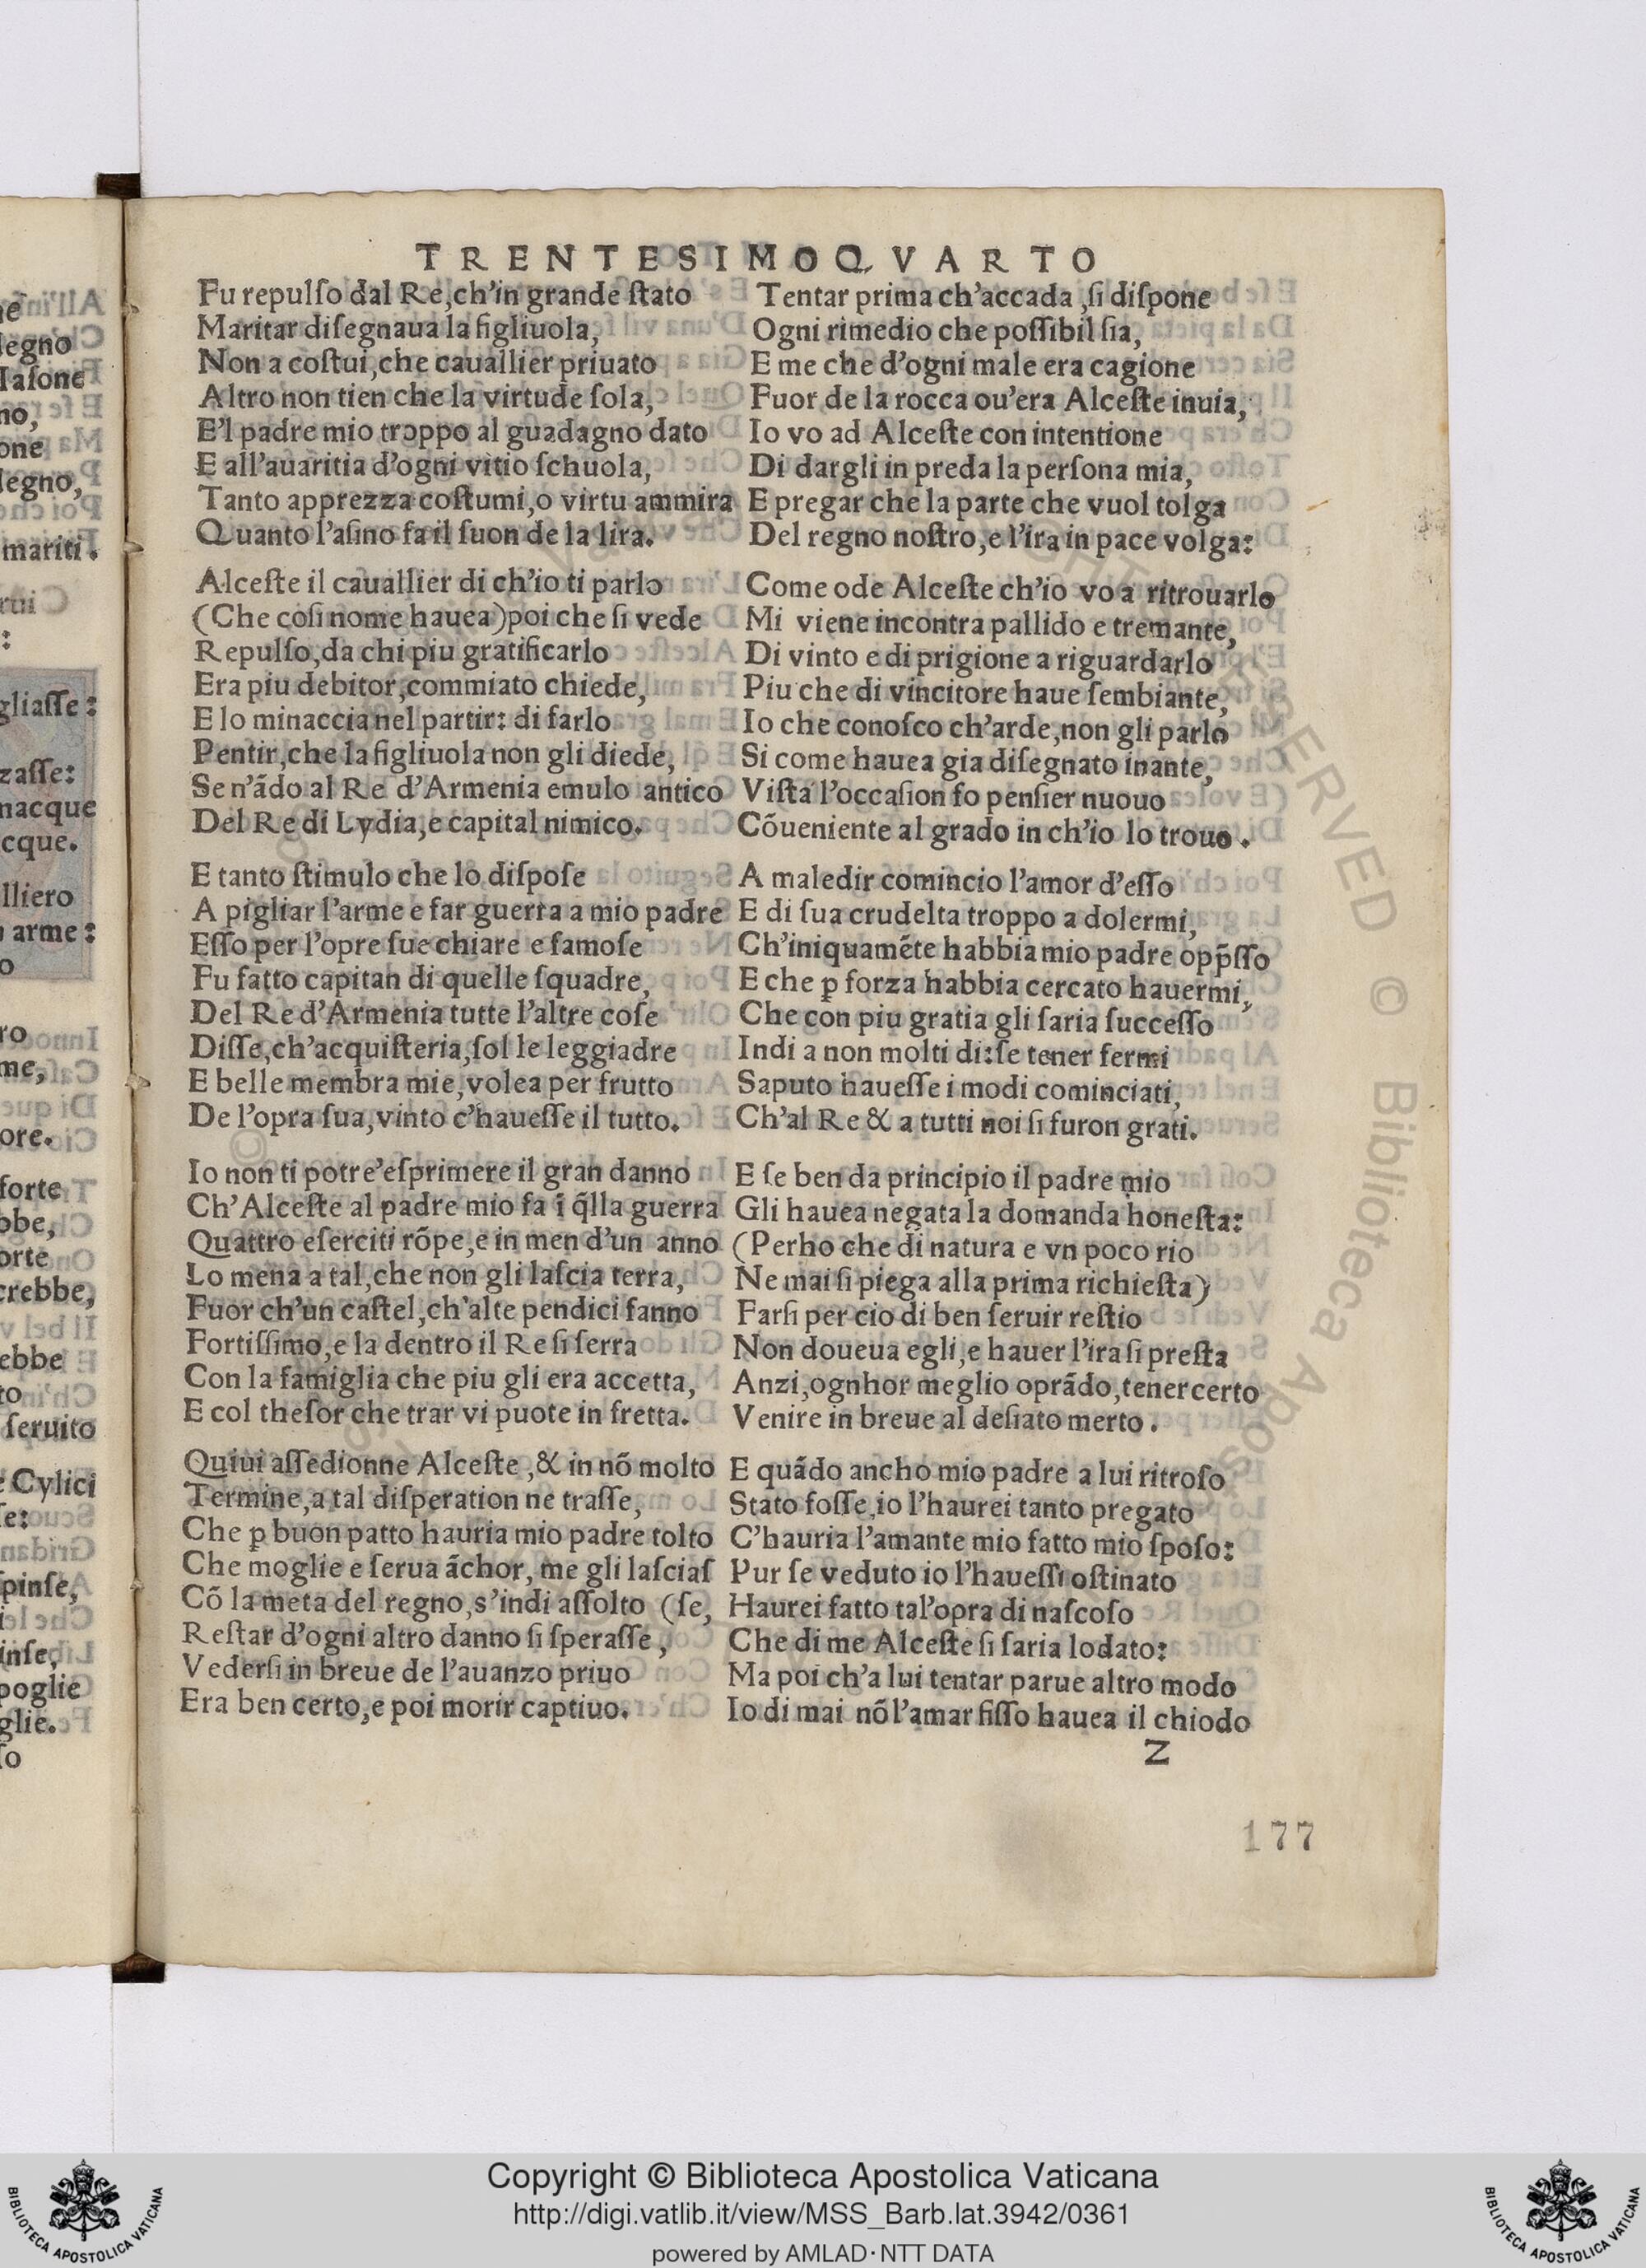 TRENTESIMOQVARTO
Fu repulſo dal Re,ch'in grande ſtato
Maritar diſegnaua la figliuola,
Non a coſtui,che cauallier priuato
Altro non tien che la virtude ſola,
E'l padre mio troppo al guadagno dato
E all'auaritia d'ogni vitio ſchuola,
Tanto apprezza coſtumi,o virtu ammira
Quanto l'aſino fa il ſuon de la lira.
Alceſte il cauallier di ch'io ti parlo
(Che coſi nome hauea)poi che ſi vede
Repulſo,da chi piu gratificarlo
Era piu debitor,commiato chiede,
E lo minaccia nel partir: di farlo
Pentir,che la figliuola non gli diede,
Se n'ãdo al Re d'Armenia emulo antico
Del Re di Lydia,e capital nimico.
E tanto ſtimulo che lo diſpoſe
A pigliar l'arme e far guerra a mio padre
Eſſo per l'opre ſue chiare e famoſe
Fu fatto capitan di quelle ſquadre,
Del Re d'Armenia tutte l'altre coſe
Diſſe,ch'acquiſteria,ſol le leggiadre
E belle membra mie,volea per frutto
De l'opra ſua,vinto c'haueſſe il tutto.
Io non ti potre'eſprimere il gran danno
Ch'Alceſte al padre mio fa ĩ q̃lla guerra
Quattro eſerciti rõpe,e in men d'un anno
Lo mena a tal,che non gli laſcia terra,
Fuor ch'un caſtel,ch'alte pendici fanno
Fortiſſimo,e la dentro il Re ſi ſerra
Con la famiglia che piu gli era accetta,
E col theſor che trar vi puote in fretta.
Quiui aſſedionne Alceſte,& in nõ molto
Termine,a tal diſperation ne traſſe,
Che ꝑ buon patto hauria mio padre tolto
Che moglie e ſerua ãchor, me gli laſciaſ
Cõ la meta del regno,s'indi aſſolto (ſe,
Reſtar d'ogni altro danno ſi ſperaſſe,
Vederſi in breue de l'auanzo priuo
Era ben certo,e poi morir captiuo.
Tentar prima ch'accada,ſi diſpone
Ogni rimedio che poſſibil ſia,
E me che d'ogni male era cagione
Fuor de la rocca ou'era Alceſte inuia,
Io vo ad Alceſte con intentione
Di dargli in preda la perſona mia,
E pregar che la parte che vuol tolga
Del regno noſtro,e l'ira in pace volga:
Come ode Alceſte ch'io vo a ritrouarlo
Mi viene incontra pallido e tremante,
Di vinto e di prigione a riguardarlo
Piu che di vincitore haue ſembiante,
Io che conoſco ch'arde,non gli parlo
Si come hauea gia diſegnato inante,
Viſta l'occaſion fo penſier nuouo
Cõueniente al grado in ch'io lo trouo.
A maledir comincio l'amor d'eſſo
E di ſua crudelta troppo a dolermi,
Ch'iniquamẽte habbia mio padre opp̃ſſo
E che ꝑ forza habbia cercato hauermi,
Che con piu gratia gli ſaria ſucceſſo
Indi a non molti di:ſe tener fermi
Saputo haueſſe i modi cominciati,
Ch'al Re & a tutti noi ſi furon grati.
E ſe ben da principio il padre mio
Gli hauea negata la domanda honeſta:
(Perho che di natura e vn poco rio
Ne mai ſi piega alla prima richieſta)
Farſi per cio di ben ſeruir reſtio
Non doueua egli,e hauer l'ira ſi preſta
Anzi,ognhor meglio oprãdo,tener certo
Venire in breue al deſiato merto.
E quãdo ancho mio padre a lui ritroſo
Stato foſſe,io l'haurei tanto pregato
C'hauria l'amante mio fatto mio ſpoſo:
Pur ſe veduto io l'haueſſi oſtinato
Haurei fatto tal'opra di naſcoſo
Che di me Alceſte ſi ſaria lodato:
Ma poi ch'a lui tentar parue altro modo
Io di mai nõ l'amar fiſſo hauea il chiodo
Z
177
Copyright © Biblioteca Apostolica Vaticana
http://digi.vatlib.it/view/MSS_Barb.lat.3942/0361
powered by AMLAD·NTT DATA
BIBLIOTECA APOSTOLICA VATICANA
BIBLIOTECA APOSTOLICA VATICANA